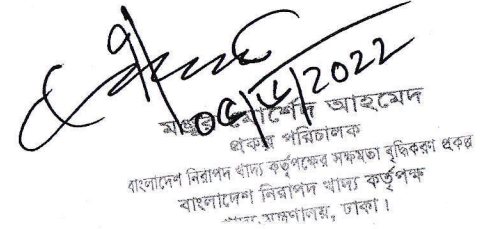 2022
মঞ্জুর মোর্শেদ আহমেদ
প্রকল্প পরিচালক
বাংলাদেশ নিরাপদ খাদ্য কর্তৃপক্ষের সক্ষমতা বৃদ্ধিকরণ প্রকল্প
বাংলাদেশ নিরাপদ খাদ্য কর্তৃপক্ষ
খাদ্য মন্ত্রণালয়, ঢাকা।